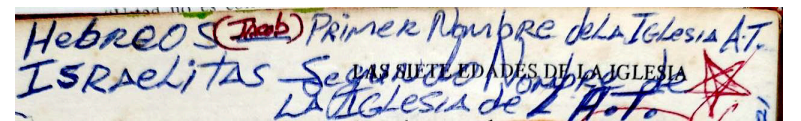 Hebreos (Jacob) Primer Nombre de La Iglesia A.T.
Israelitas - Segundo Nombre de
LAS SIETE EDADES DE LA IGLESIA
La Iglesia de L A.T.